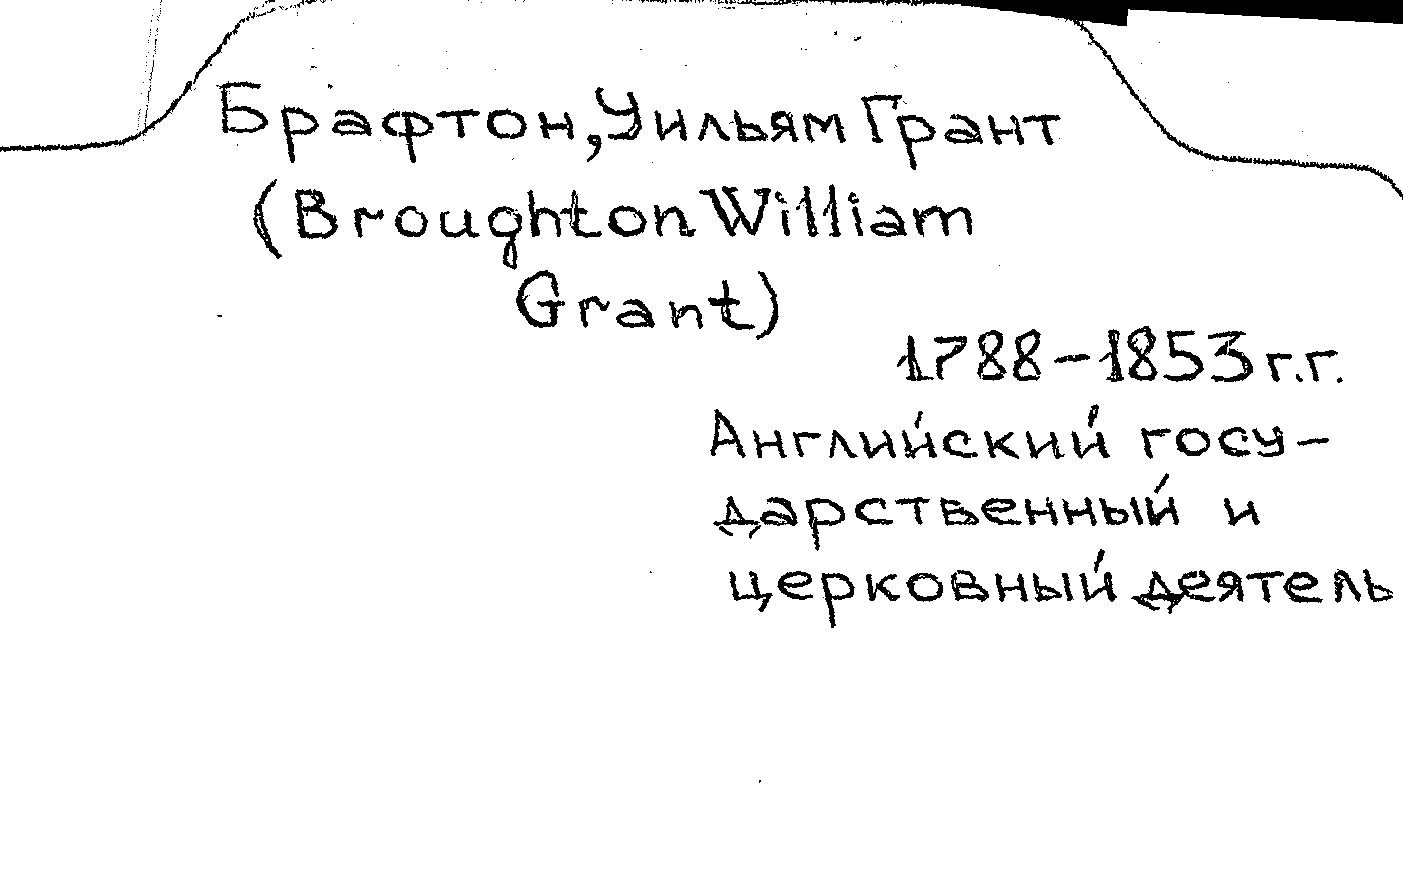 Брафтон, Уильям Грант
(Broughton William
Grant)
1788-1853 г.г.
Английский госу-
дарственный и
церковный деятель